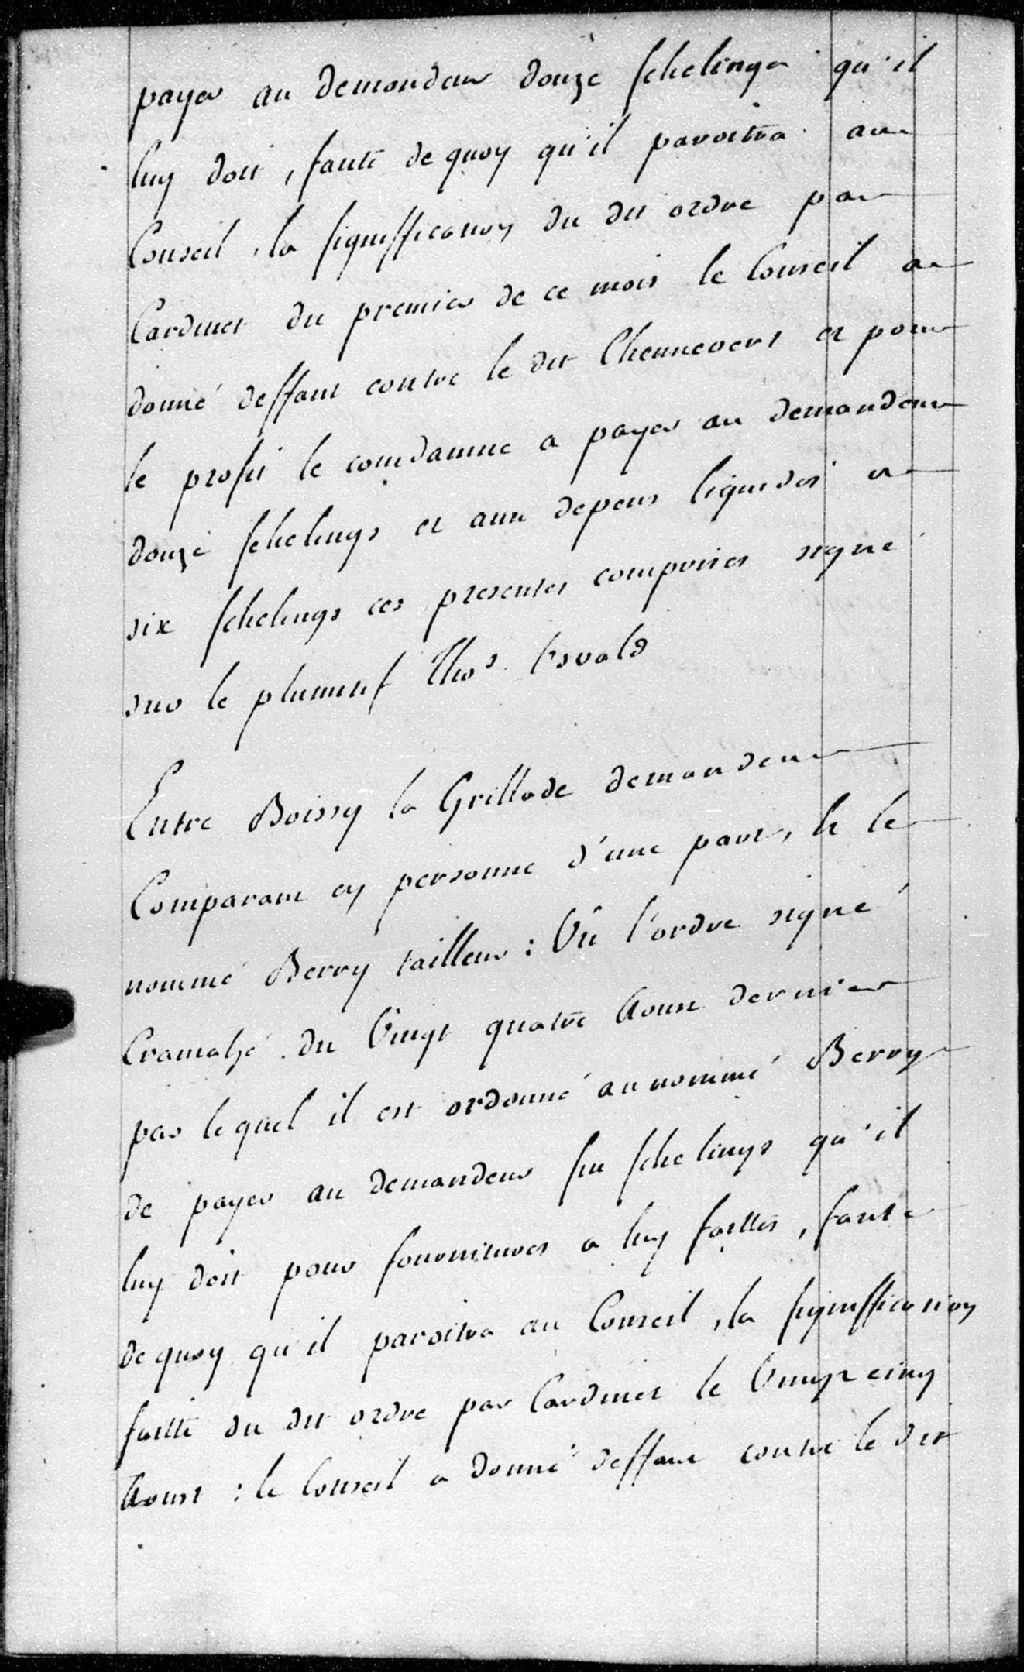 payer au demandeur douze schelings qu'il
luy doit, faute de quoy qu'il paroitra au
Conseil, la signiffication du dit ordre par
Cardinet du premier de ce mois le Conseil a
donné deffaut contre le dit Chennevert et pour
le profit le comdamne a payer au demandeur
douze schelings et aux depens liquidés a
six schelings ces presentes comprises signé
sur le plumitif Thos.
Entre Boissy la Grillade demandeur
Comparant en personne d'une part, Et le
nommé Berry tailleur : Vû l'ordre signé
Cramahé du Vingt quatre Aoust dernier
par lequel il est ordonné au nommé Berry
de payer au demandeur schelings qu'il
luy doit pour fournitures a luy faittes, faute
de quoy qu'il paroitra au Conseil, la signiffication
faitte du dit ordre par Cardinet le Vingt cinq
Aoust : le Conseil a donné deffaut contre le dit